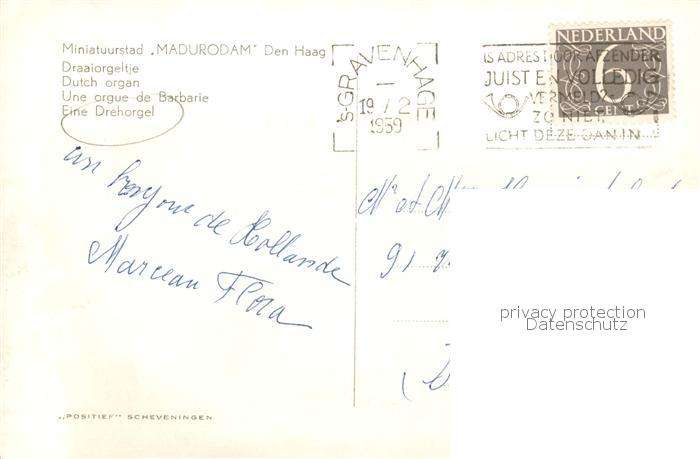 Miniatuurstad „MADURODAM" Den Haag
Draaiorgeltje
Dutch organ
Une orgue de Barbarie
Eine Drehorgel
'S-GRAVENHAGE
19 / 2
1959
NEDERLAND
6
CENT
IS ADRES DOOR AFZENDER
JUIST EN VOLLEDIG
VERMELD?
ZO NIET,
LICHT DEZE DAN IN
un bonjour de Hollande
Marceau Flora
Mr et M
91
privacy protection
Datenschutz
„POSITIEF" SCHEVENINGEN